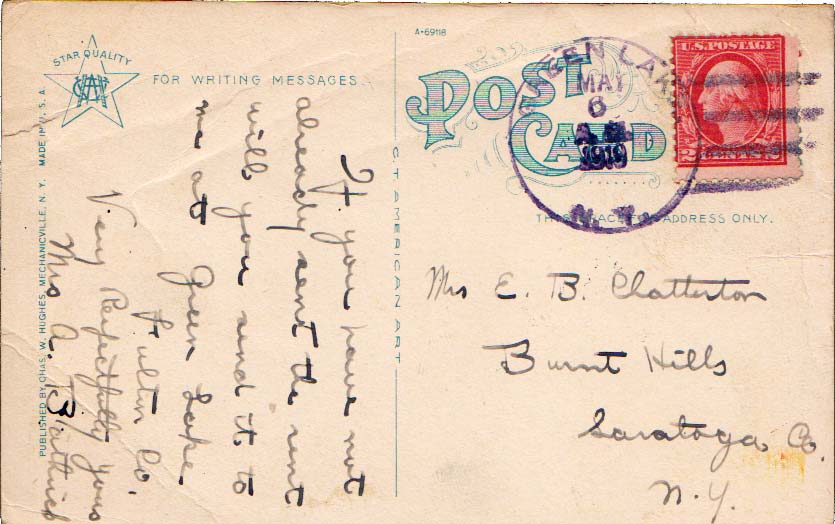 A-69118
STAR QUALITY
FOR WRITING MESSAGES.
POST
CARD
THIS SPACE FOR ADDRESS ONLY.
GREEN LAKE
MAY
6
A.M.
1919
N.Y.
U.S. POSTAGE
2 CENTS 2
Mrs E. B. Chatterton
Burnt Hills
Saratoga Co.
N.Y.
If you have not
already sent the rent
will you send it to
me at Green Lake
Fulton Co.
Very Respectfully yours
Mrs A.
C. T. AMERICAN ART
PUBLISHED BY CHAS. W. HUGHES, MECHANICVILLE, N. Y. MADE IN U. S. A.